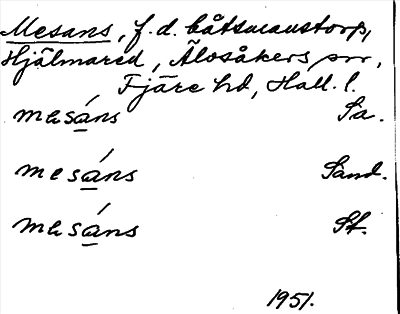 Mesans, f.d. båtsmanstorp,
Hjälmared, Älvsåkers sn,
Fjäre hd, Hall. l.
mesáns Sa.
mesáns Sand.
mesáns St.
1951.